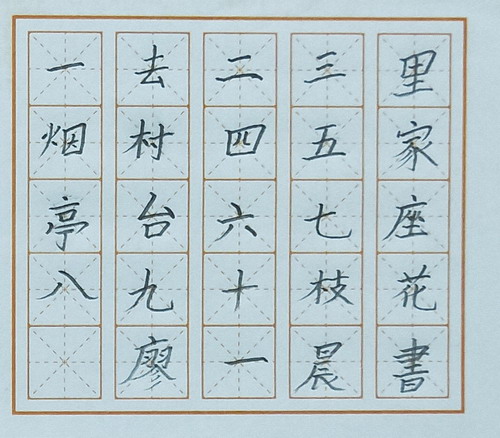 一去二三里
烟村四五家
亭台六七座
八九十枝花
廖一晨書